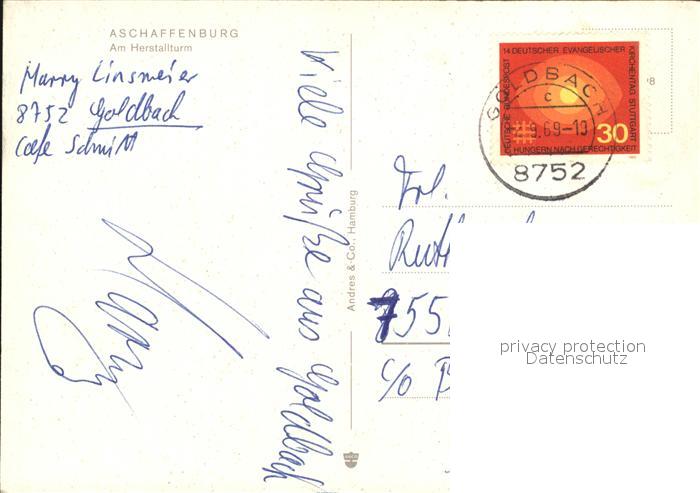 ASCHAFFENBURG
Am Herstallturm
8752 Goldbach
Cafe Schmitt
Viele Grüße aus Goldbach
Andres & Co., Hamburg
14. DEUTSCHER EVANGELISCHER
KIRCHENTAG STUTTGART
DEUTSCHE BUNDESPOST
HUNGERN NACH GERECHTIGKEIT
30
GOLDBACH
c
.69-19
8752
Frl.
755
c/o
privacy protection
Datenschutz